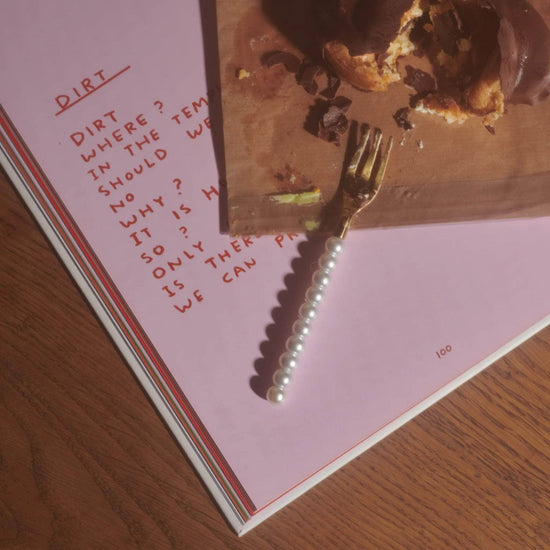 DIRT
DIRT
WHERE?
IN THE
SHOULD
NO
WHY?
IT IS
SO?
ONLY
IS
WE CAN
100